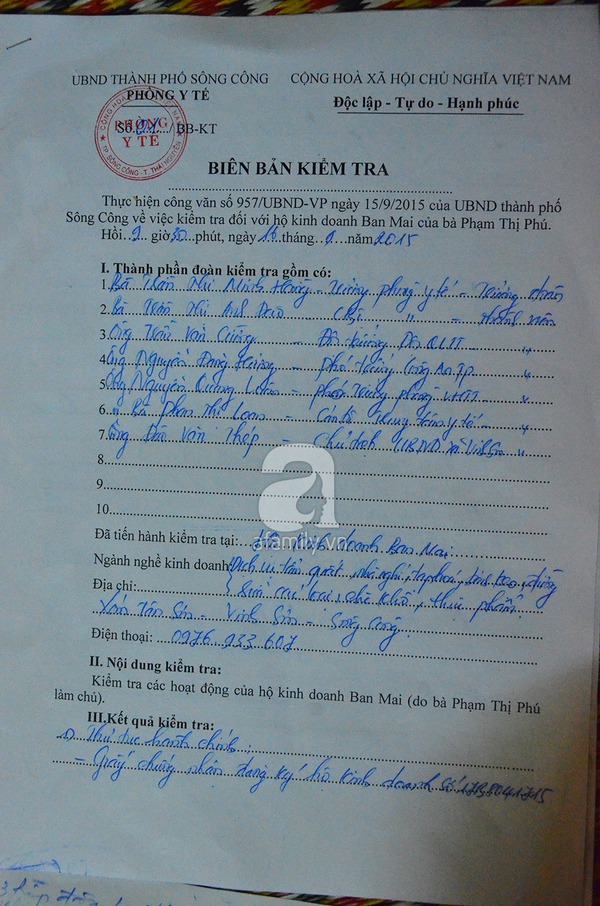 UBND THÀNH PHỐ SÔNG CÔNG
PHÒNG Y TẾ
Số:01/BB-KT
CỘNG HOÀ XÃ HỘI CHỦ NGHĨA VIỆT NAM
Độc lập - Tự do - Hạnh phúc
PHÒNG
Y TẾ
TP SÔNG CÔNG - T. THÁI NGUYÊN
BIÊN BẢN KIỂM TRA
Thực hiện công văn số 957/UBND-VP ngày 15/9/2015 của UBND thành phố
Sông Công về việc kiểm tra đối với hộ kinh doanh Ban Mai của bà Phạm Thị Phú.
Hồi 9 giờ 30 phút, ngày 16 tháng 9 năm 2015
I. Thành phần đoàn kiểm tra gồm có:
1. Bà Trần Thị Minh - Trưởng phòng y tế - Trưởng đoàn
2. Bà Trần Thị Anh Đào - CB " - Thành viên
3. Ông Trần Văn Cường - Đội trưởng Đội QLTT - "
4. Ông Nguyễn - Phó trưởng Công An TP - "
5. Ông Nguyễn Quang - phó trưởng phòng VHTT - "
6. Bà Phan Thị Loan - Cán bộ trung tâm y tế - "
7. Ông Đào Văn Thép - Chủ tịch UBND xã Vinh Sơn "
8.
9.
10.
a
afamily.vn
Đã tiến hành kiểm tra tại: Hộ kinh doanh Ban Mai
Ngành nghề kinh doanh: Dịch vụ tẩm quất, nhà nghỉ, tạp hóa, đường
Địa chỉ: sữa các loại, chè khô, thực phẩm
Xóm Tân Sơn - Vinh Sơn - Sông Công
Điện thoại: 0976 233 607
II. Nội dung kiểm tra:
Kiểm tra các hoạt động của hộ kinh doanh Ban Mai (do bà Phạm Thị Phú
làm chủ).
III.Kết quả kiểm tra:
1) Thủ tục hành chính:
- Giấy chứng nhận đăng ký hộ kinh doanh số